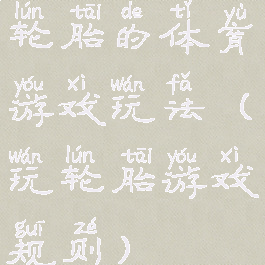 lún tāi de tǐ yù
轮胎的体育
yóu xì wán fǎ
游戏玩法（
wán lún tāi yóu xì
玩轮胎游戏
guī zé
规则）